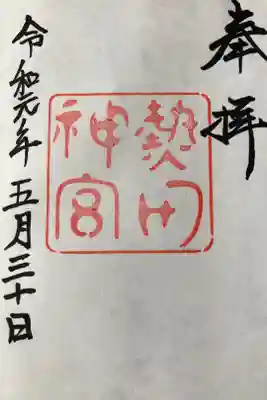 奉拝
熱田
神宮
令和元年五月三十日